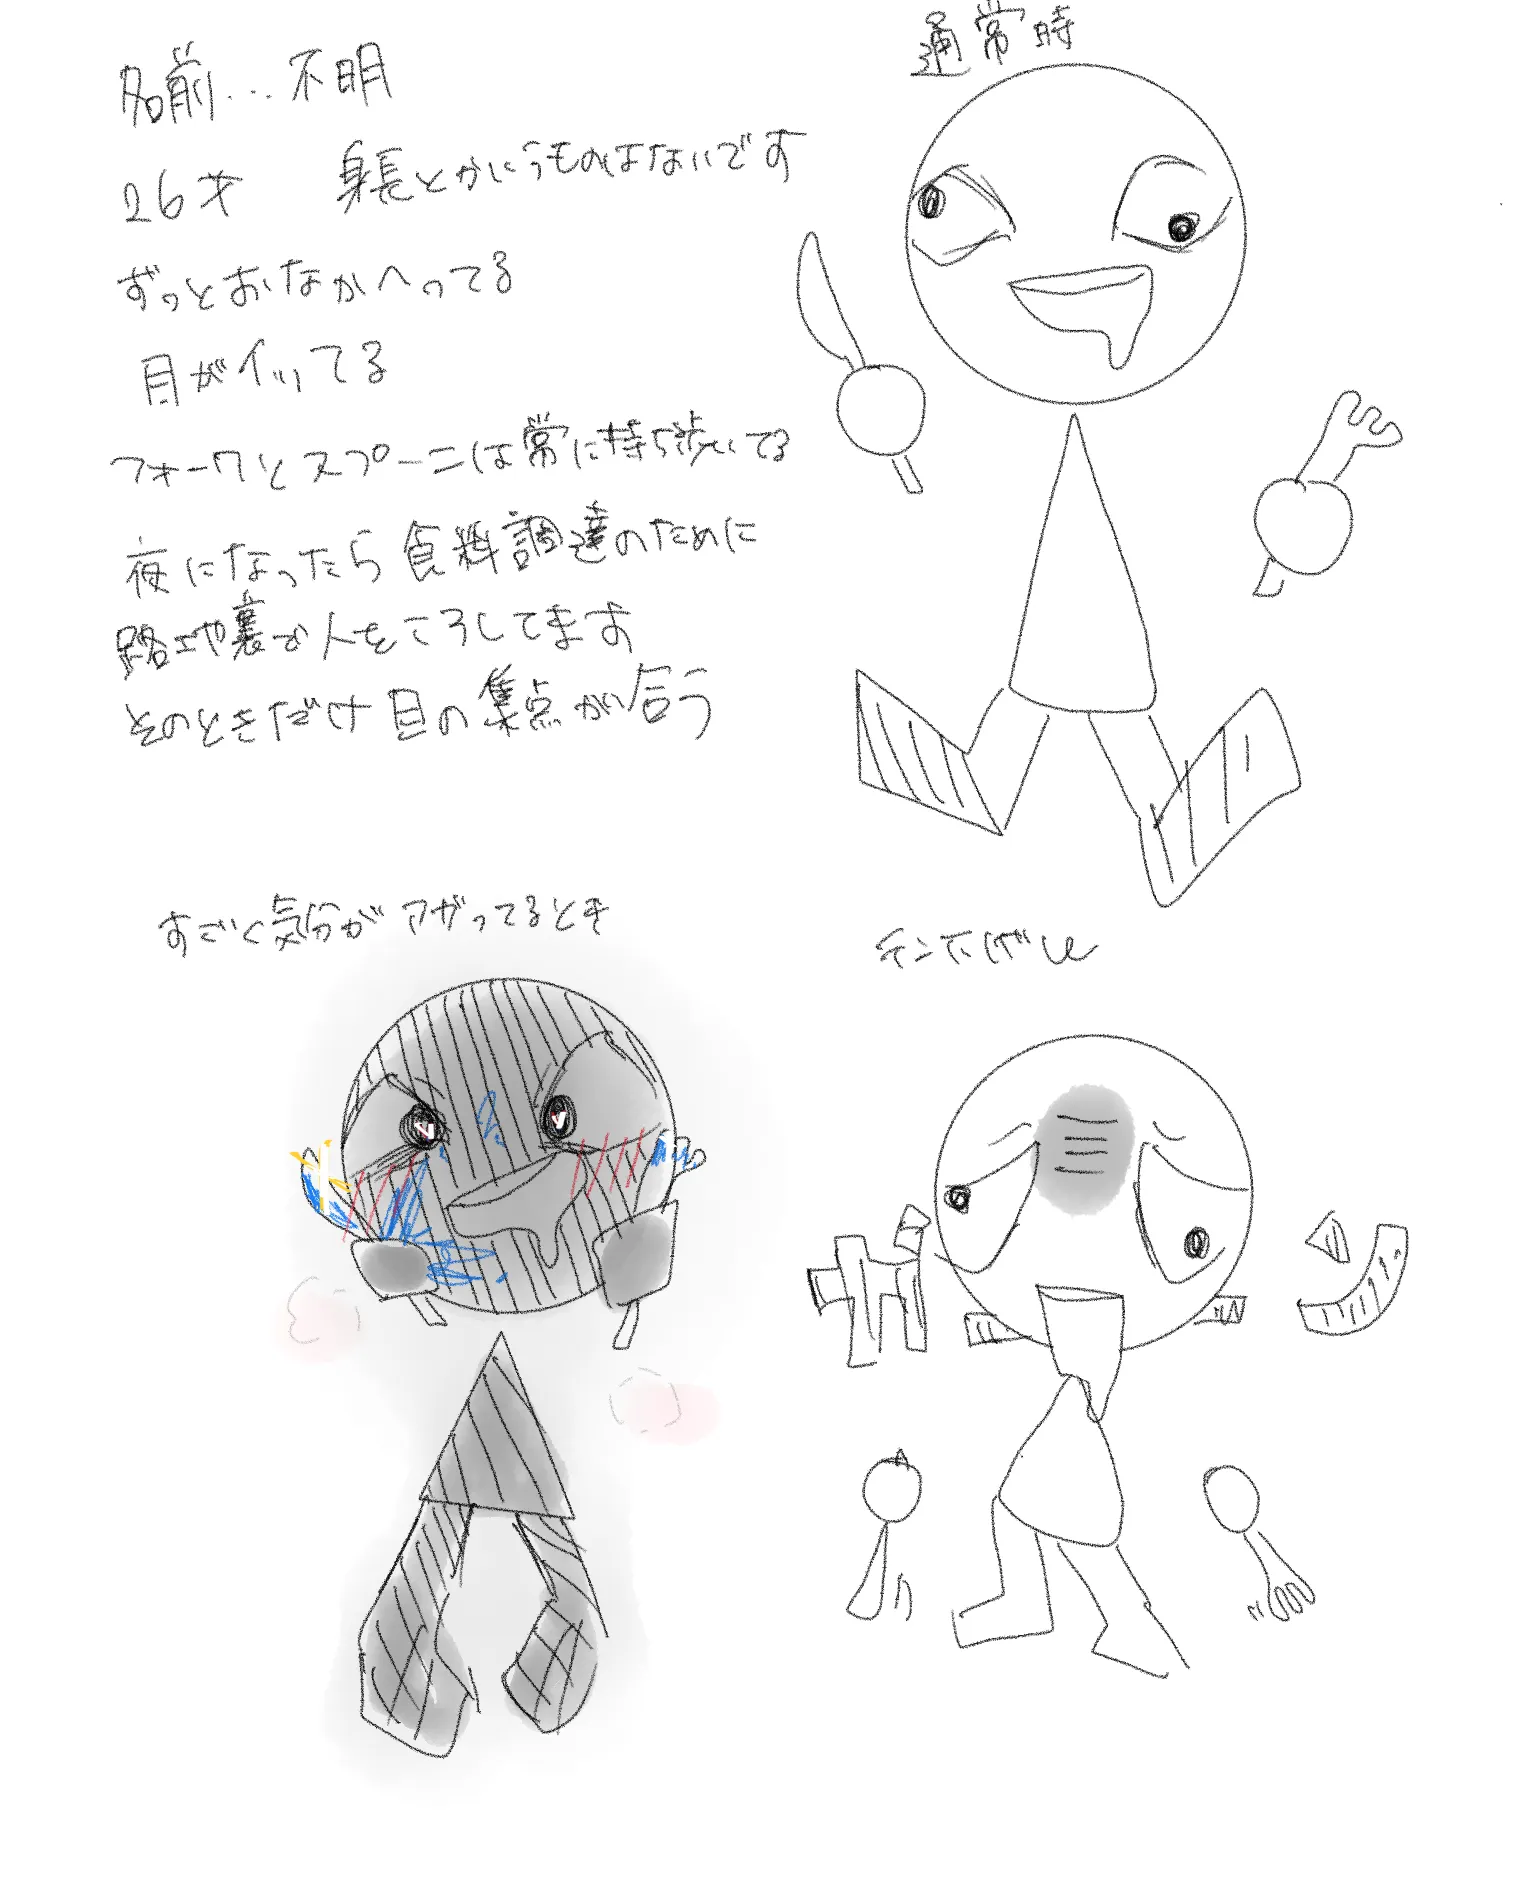 名前…不明
通常時
26才 身長とかいうものはないです
ずっとおなかへってる
目がイッてる
フォークとスプーンは常に持ち歩いてる
夜になったら食料調達のために
路地や裏で人をころしてます
そのときだけ目の集点が合う
すごく気分がアガってるとき
テン下げし